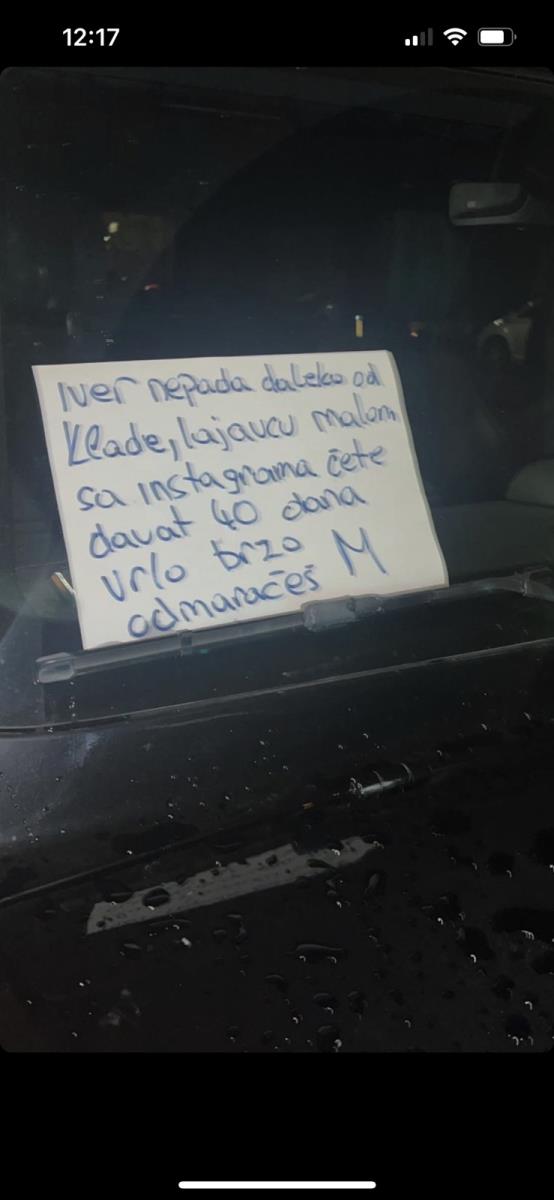 12:17
Iver nepada daleko od
klade, lajavcu malom
sa instagrama čete
davat 40 dana
vrlo brzo M
odmaračeš